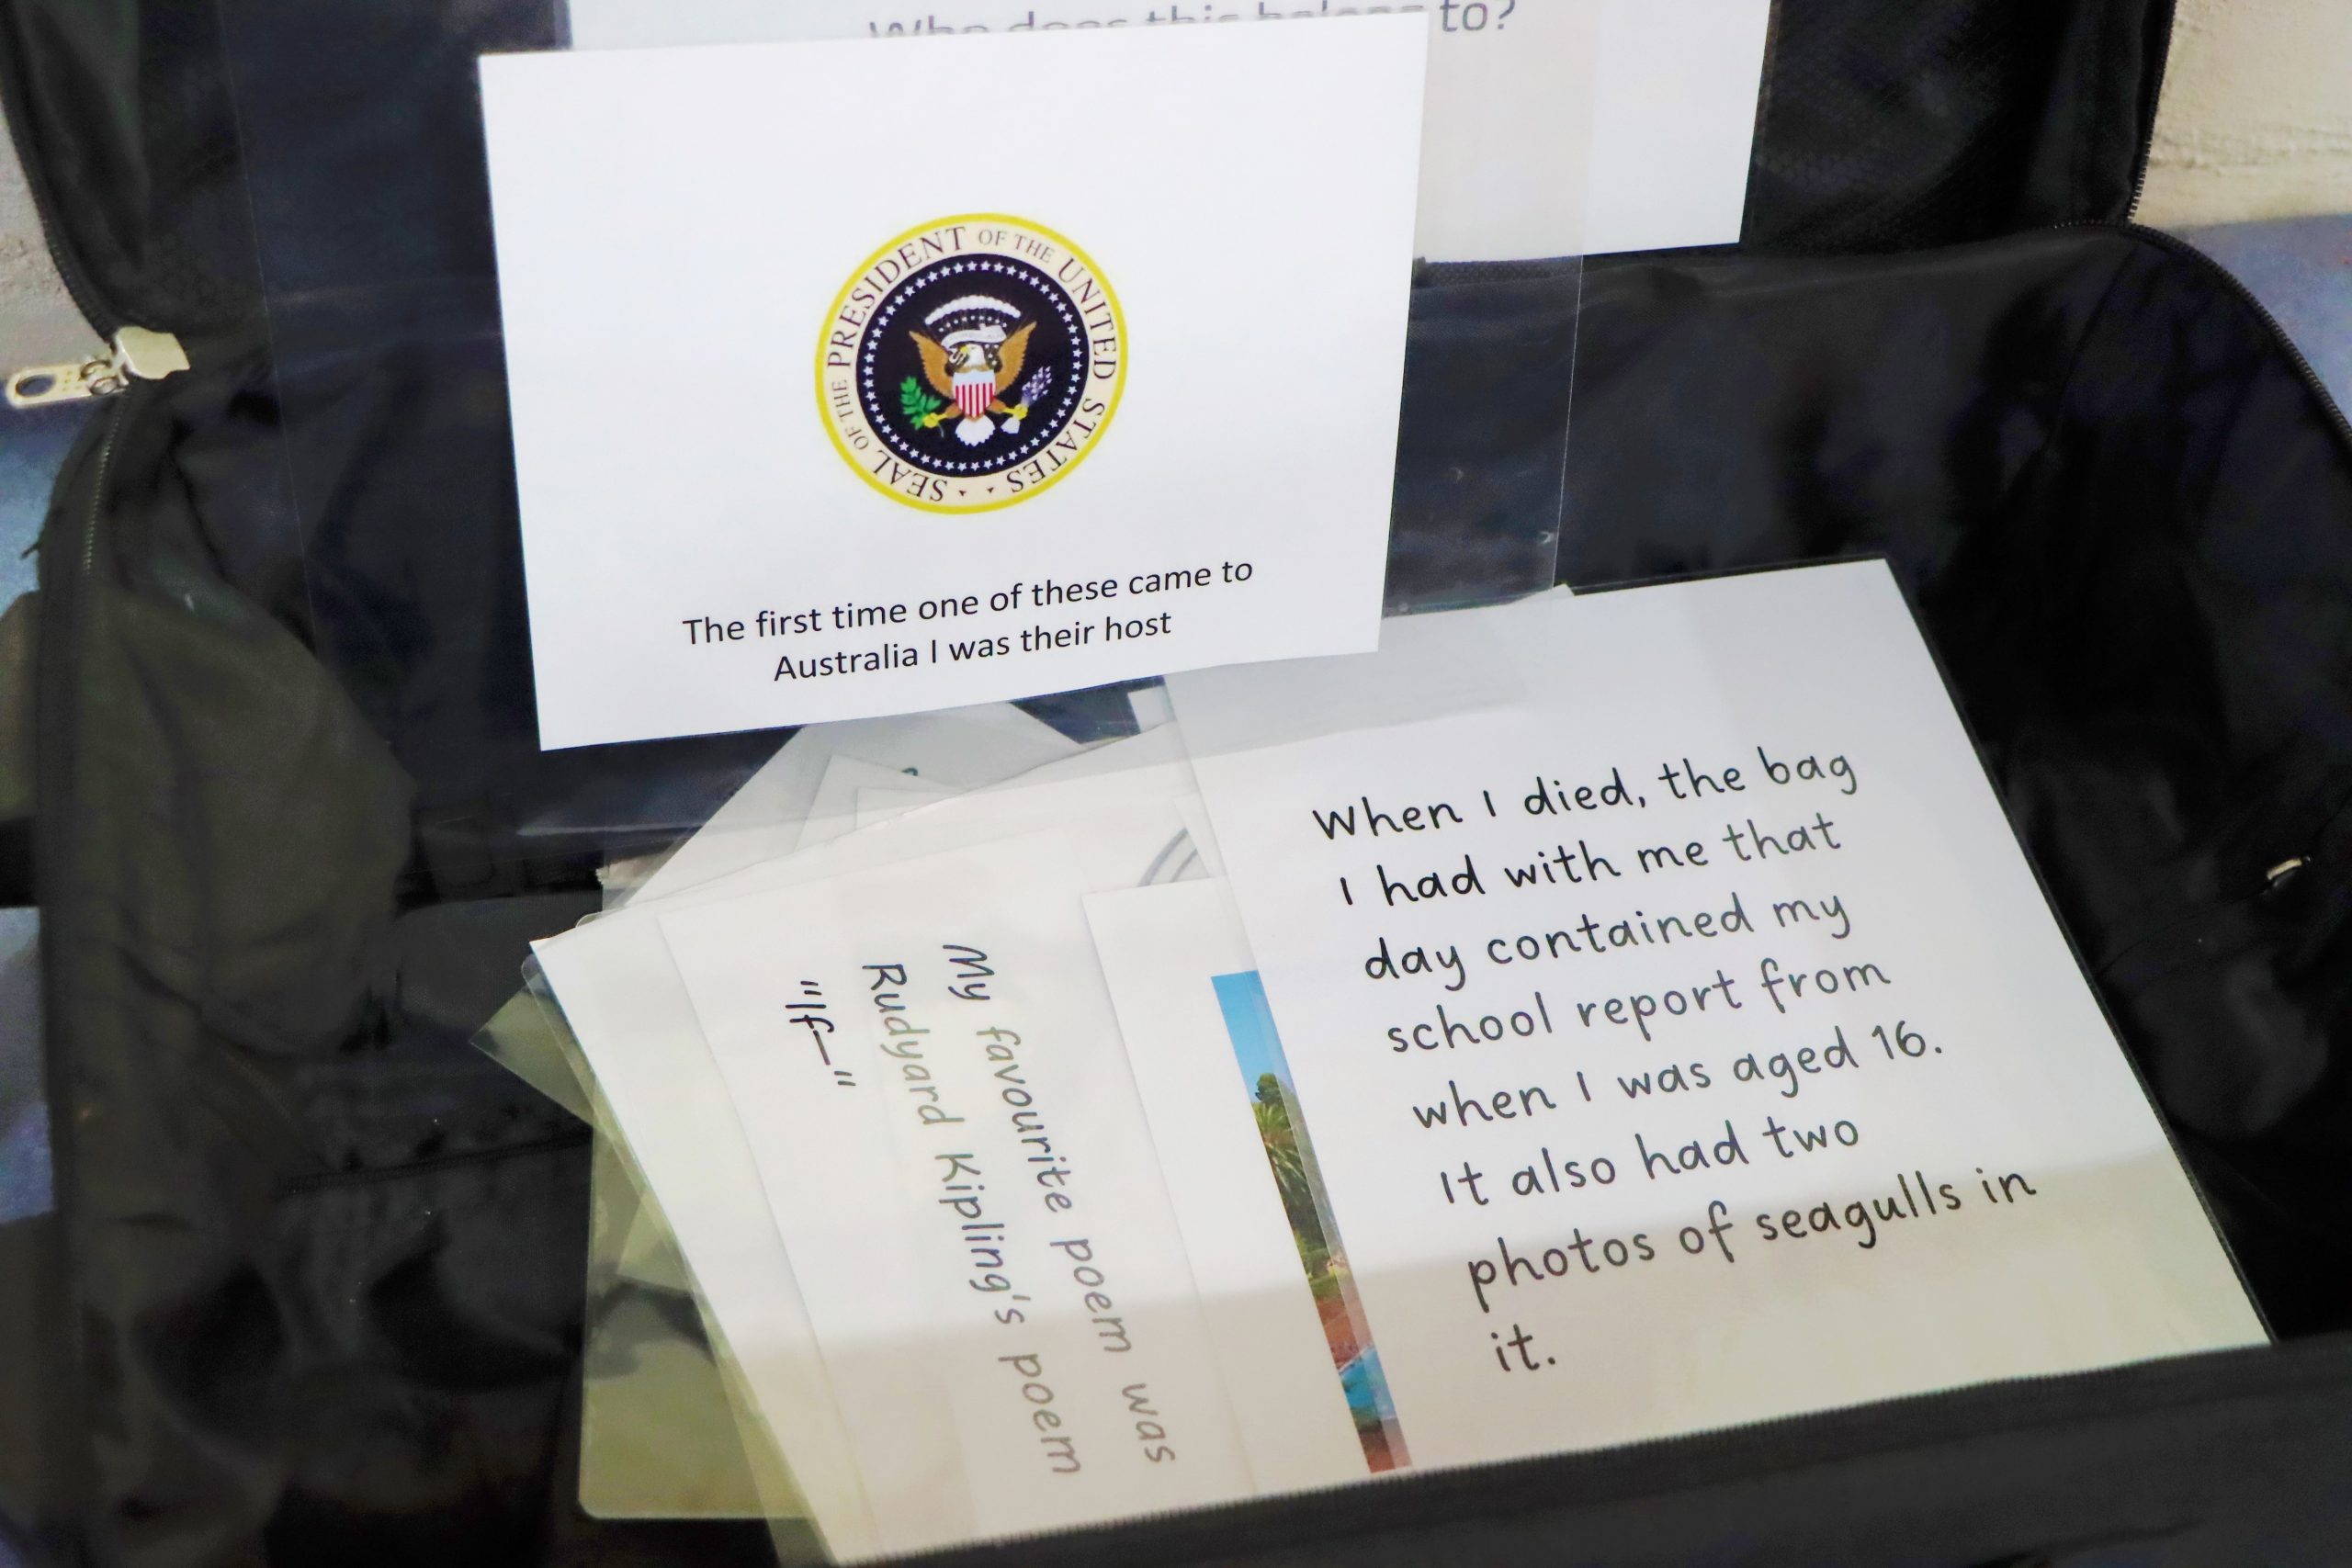 Who does this belong to?
SEAL OF THE PRESIDENT OF THE UNITED STATES
The first time one of these came to
Australia I was their host
When I died, the bag
I had with me that
day contained my
school report from
when I was aged 16.
It also had two
photos of seagulls in
it.
My favourite poem was
Rudyard Kipling's poem
"If—"